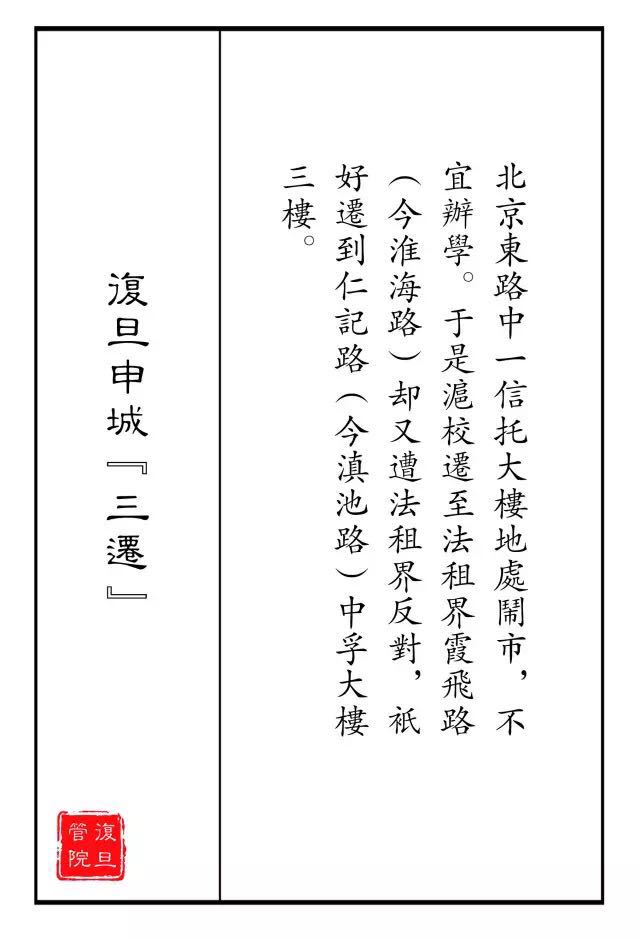 北京東路中一信托大樓地處鬧市，不
宜辦學。于是滬校遷至法租界霞飛路
（今淮海路）却又遭法租界反對，祇
好遷到仁記路（今滇池路）中孚大樓
三樓。
復旦申城『三遷』
復旦
管院